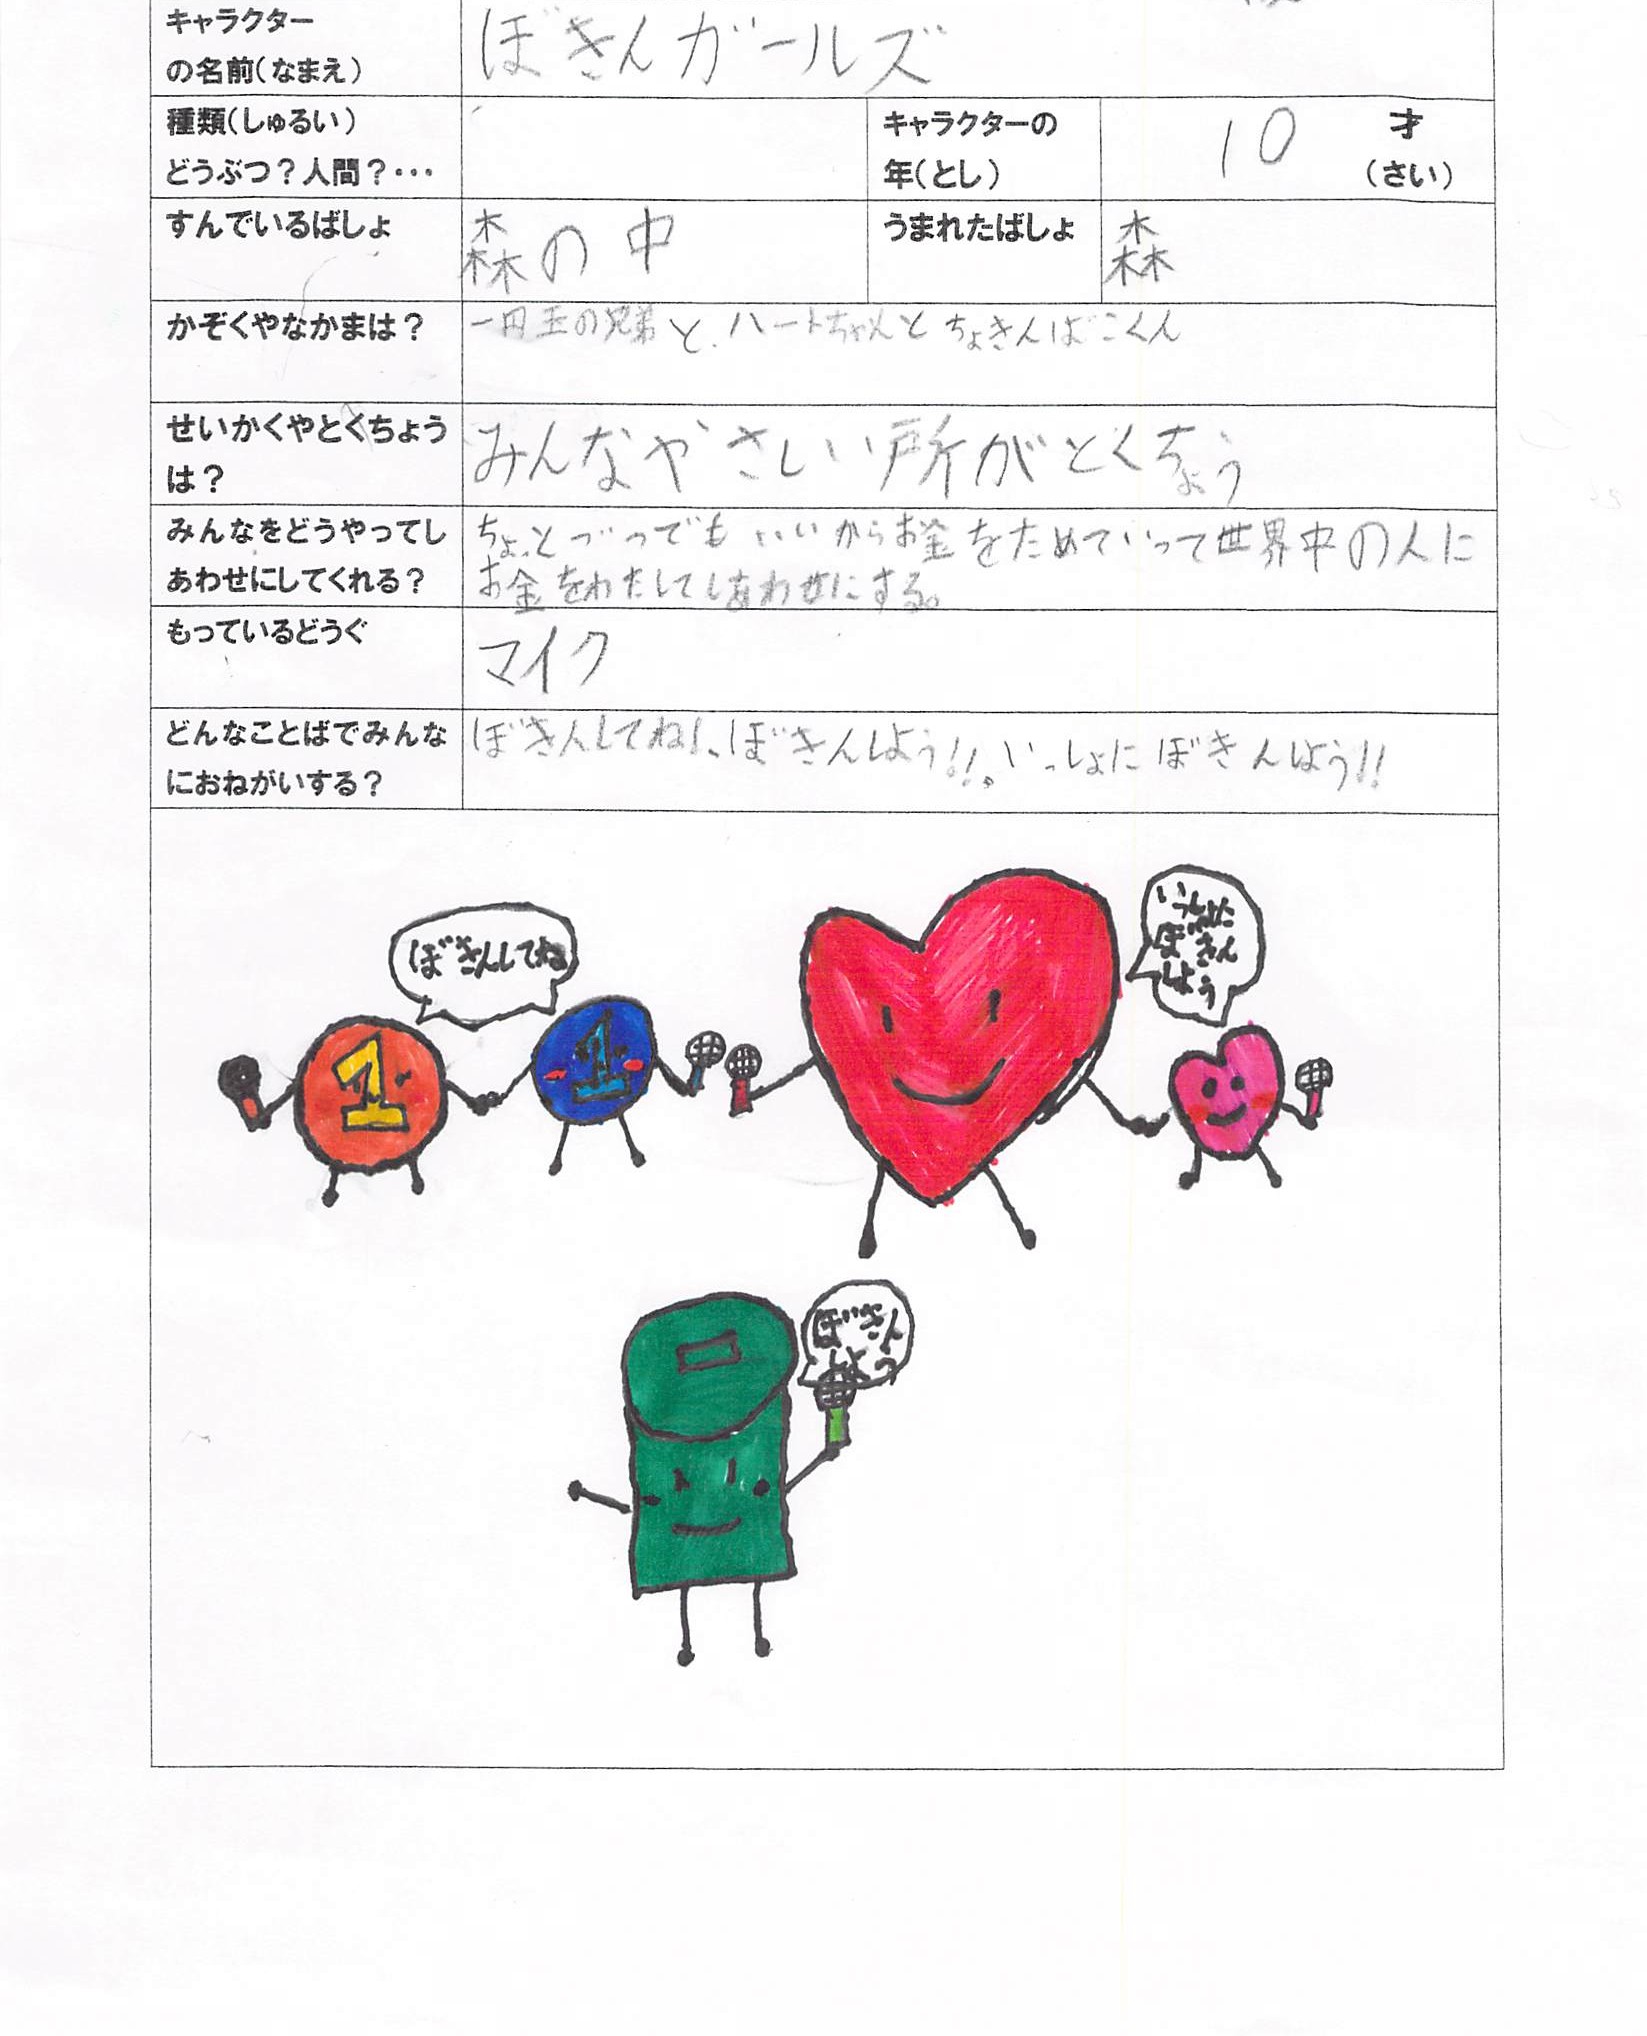 キャラクター
の名前(なまえ)
ぼきんガールズ
種類(しゅるい)
どうぶつ?人間?・・・
キャラクターの
年(とし)
10 才
(さい)
すんでいるばしょ
森の中
うまれたばしょ
森
かぞくやなかまは?
一円玉の兄弟と、ハートちゃんとちょきんばこくん
せいかくやとくちょう
は?
みんなやさしい所がとくちょう
みんなをどうやってし
あわせにしてくれる?
ちょっとづつでもいいからお金をためていって世界中の人に
お金をわたしてしあわせにする。
もっているどうぐ
マイク
どんなことばでみんな
におねがいする?
ぼきんしてね!、ぼきんしよう!!。いっしょにぼきんしよう!!
ぼきんしてね
いっしょに
ぼきん
しよう
1
1
ぼきん
しよう